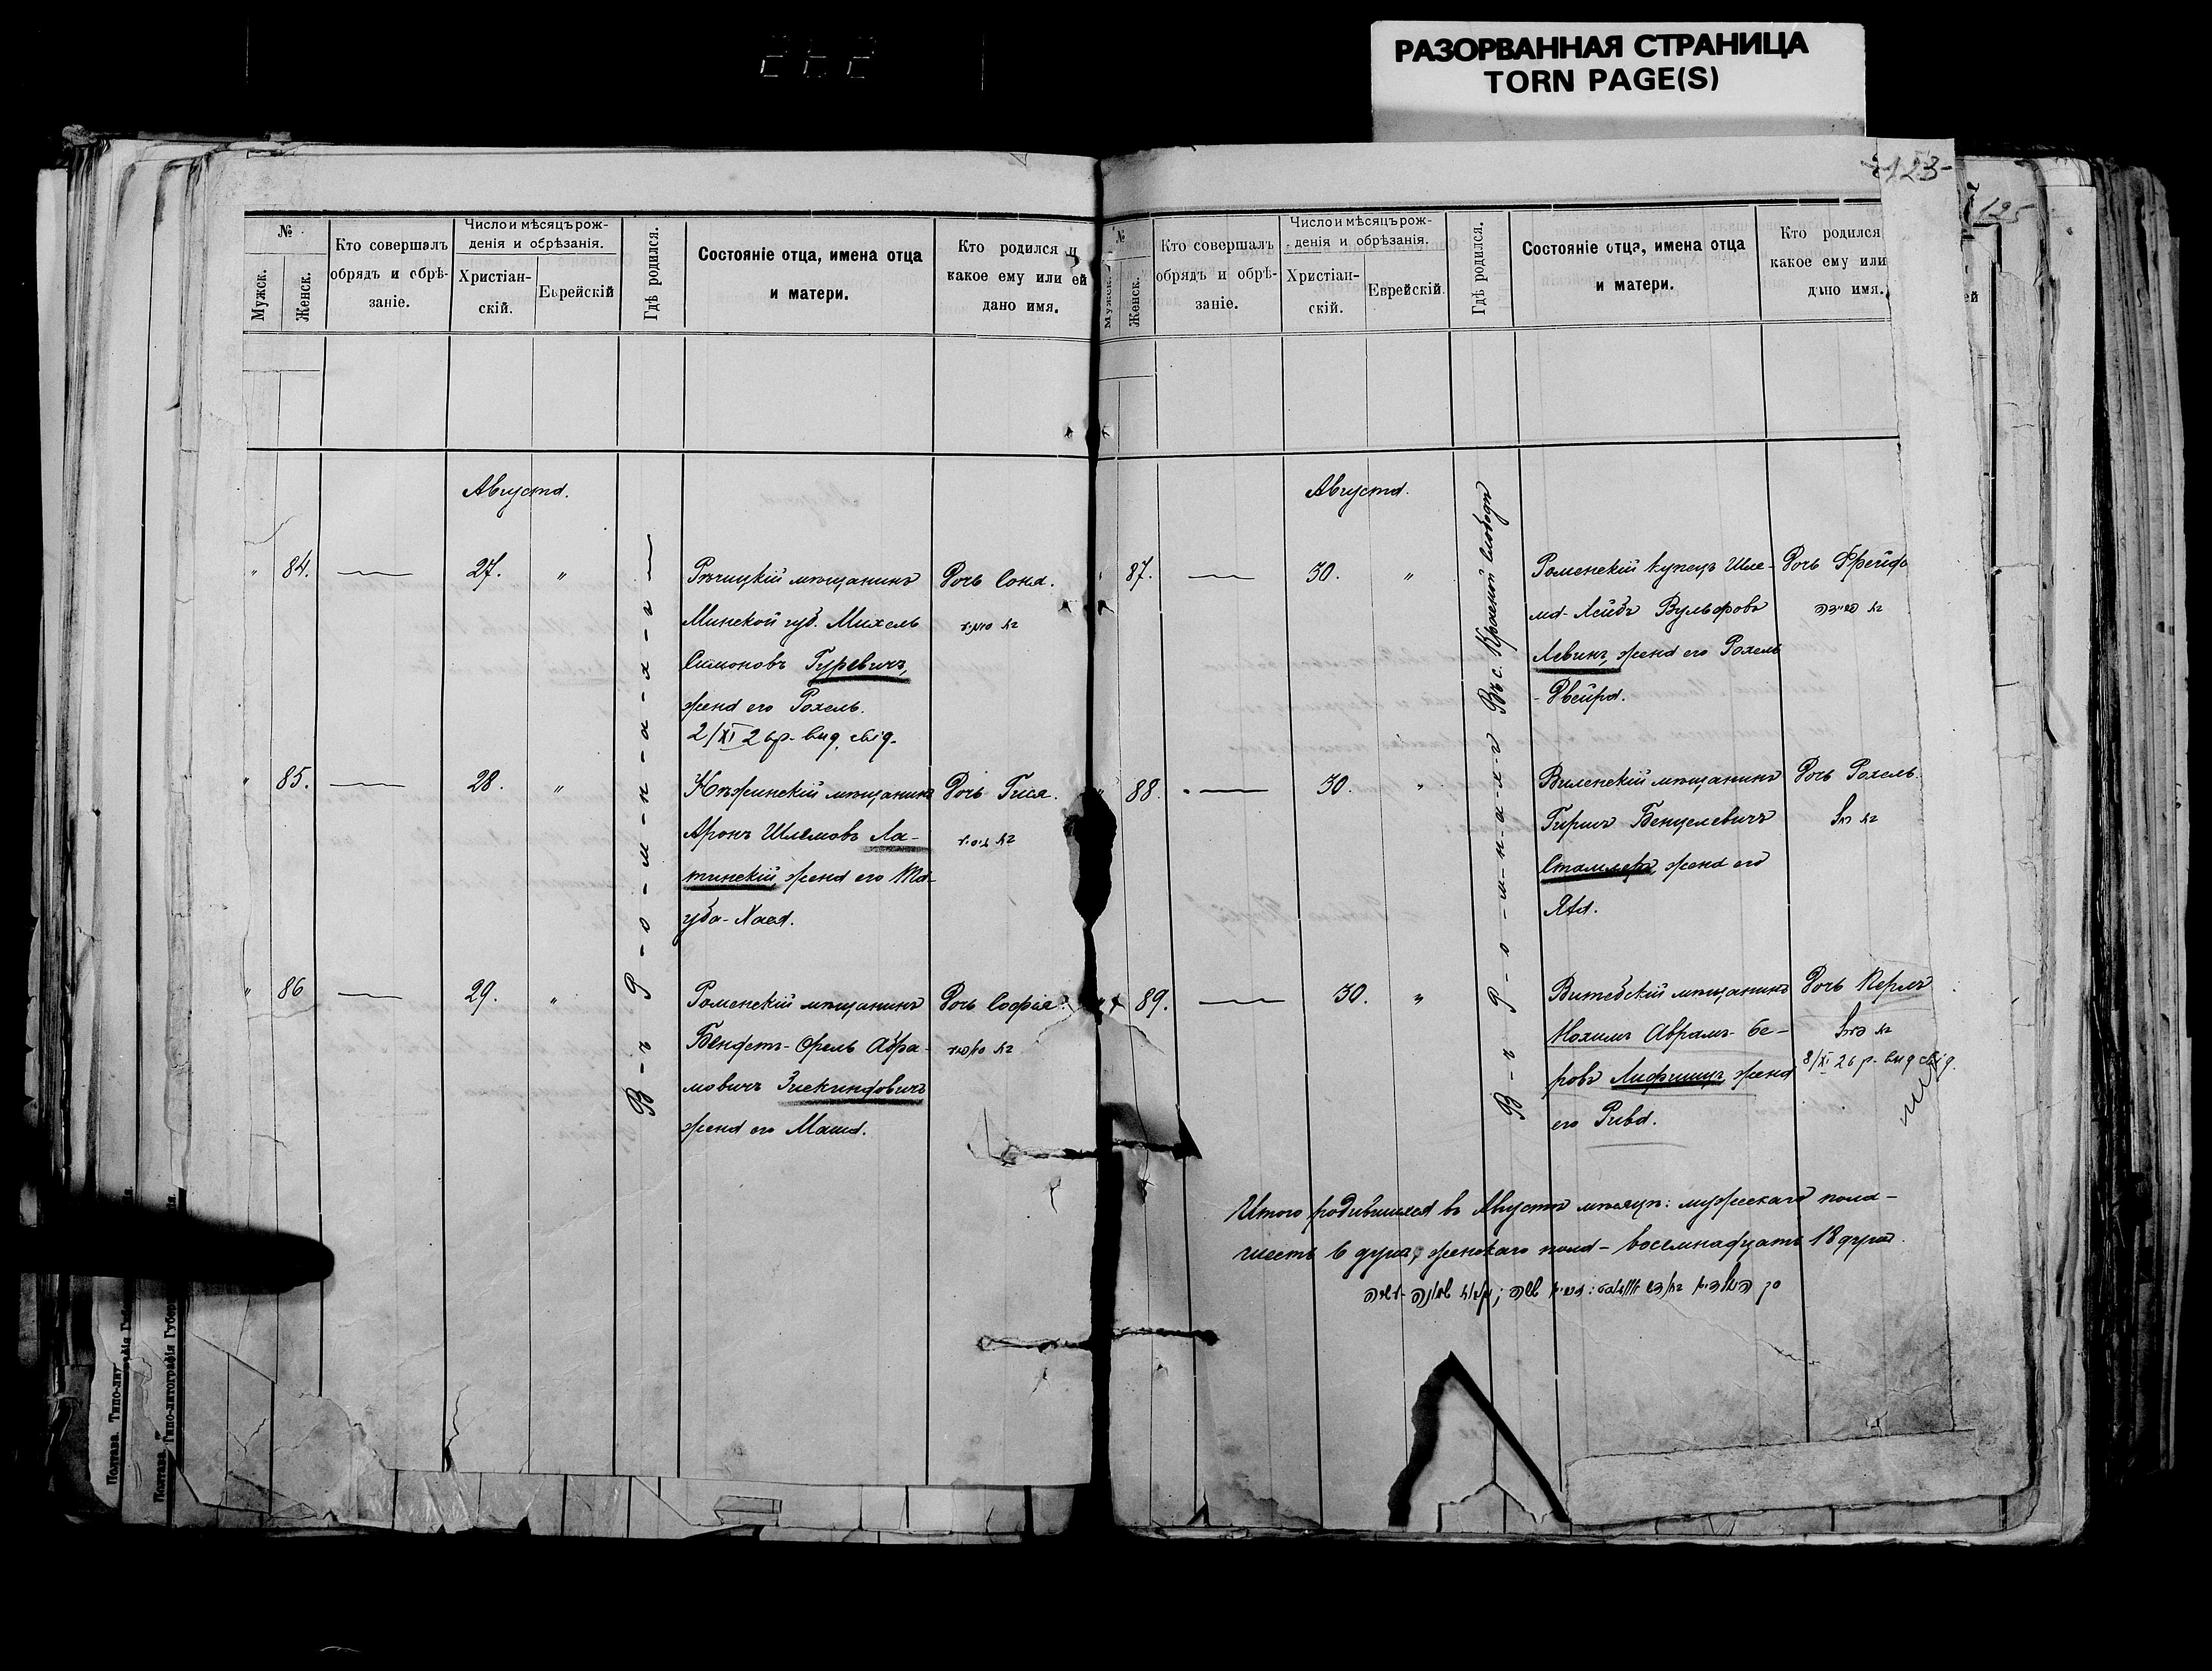 РАЗОРВАННАЯ СТРАНИЦА
TORN PAGE(S)
123-
125
№
Мужск.
Женск.
Кто совершалъ
обрядъ и обрѣ-
заніе.
Число и мѣсяцъ рож-
денія и обрѣзанія.
Христіан-
скій.
Еврейскій
Гдѣ родился.
Состояніе отца, имена отца
и матери.
Кто родился и
какое ему или ей
дано имя.
Августа.
В-ъ Р-о-м-н-а-х-ъ
" 84. — 27. "
Рѣчицкій мѣщанинъ
Минской губ. Михель
Симоновъ Гуревичъ,
жена его Рохель.
2/XI 26 р. вид. свід.
Дочь Соня.
" 85. — 28. "
Нѣжинскій мѣщанинъ
Аронъ Шлемовъ Ла-
тинскій, жена его Та-
уба-Хася.
Дочь Гися.
" 86 — 29. "
Роменскій мѣщанинъ
Бендетъ-Орель Абра-
мовичъ Зискиндовичъ
жена его Маша.
Дочь Софія.
№
Мужск.
Женск.
Кто совершалъ
обрядъ и обрѣ-
заніе.
Число и мѣсяцъ рож-
денія и обрѣзанія.
Христіан-
скій.
Еврейскій.
Гдѣ родился.
Состояніе отца, имена отца
и матери.
Кто родился
какое ему или
дано имя.
Августа.
В-ъ Р-о-м-н-а-х-ъ Въ с. Красной слободѣ
87. — 30. "
Роменскій купецъ Шле-
ма-Лейбъ Вульфовъ
Левинъ, жена его Рохель
-Двейра.
Дочь Фрейда
בת פריידה
" 88. — 30. "
Виленскій мѣщанинъ
Гиршъ Бенцелевичъ
жена его
Дочь Рохель.
בת רחל
89. — 30. "
Витебскій мѣщанинъ
Нохимъ Абрамъ-Бе-
ровъ Лифшицъ, жена
его Рива.
Дочь Перлъ
בת פרל
8/XI 26 р. вид свід.
Итого родившихся въ Августѣ мѣсяцѣ: мужескаго пола –
шесть 6 душъ, женскаго пола – восемнадцать 18 душъ.
Полтава. Типо-лит
Полтава.
Типо-литографія Губер